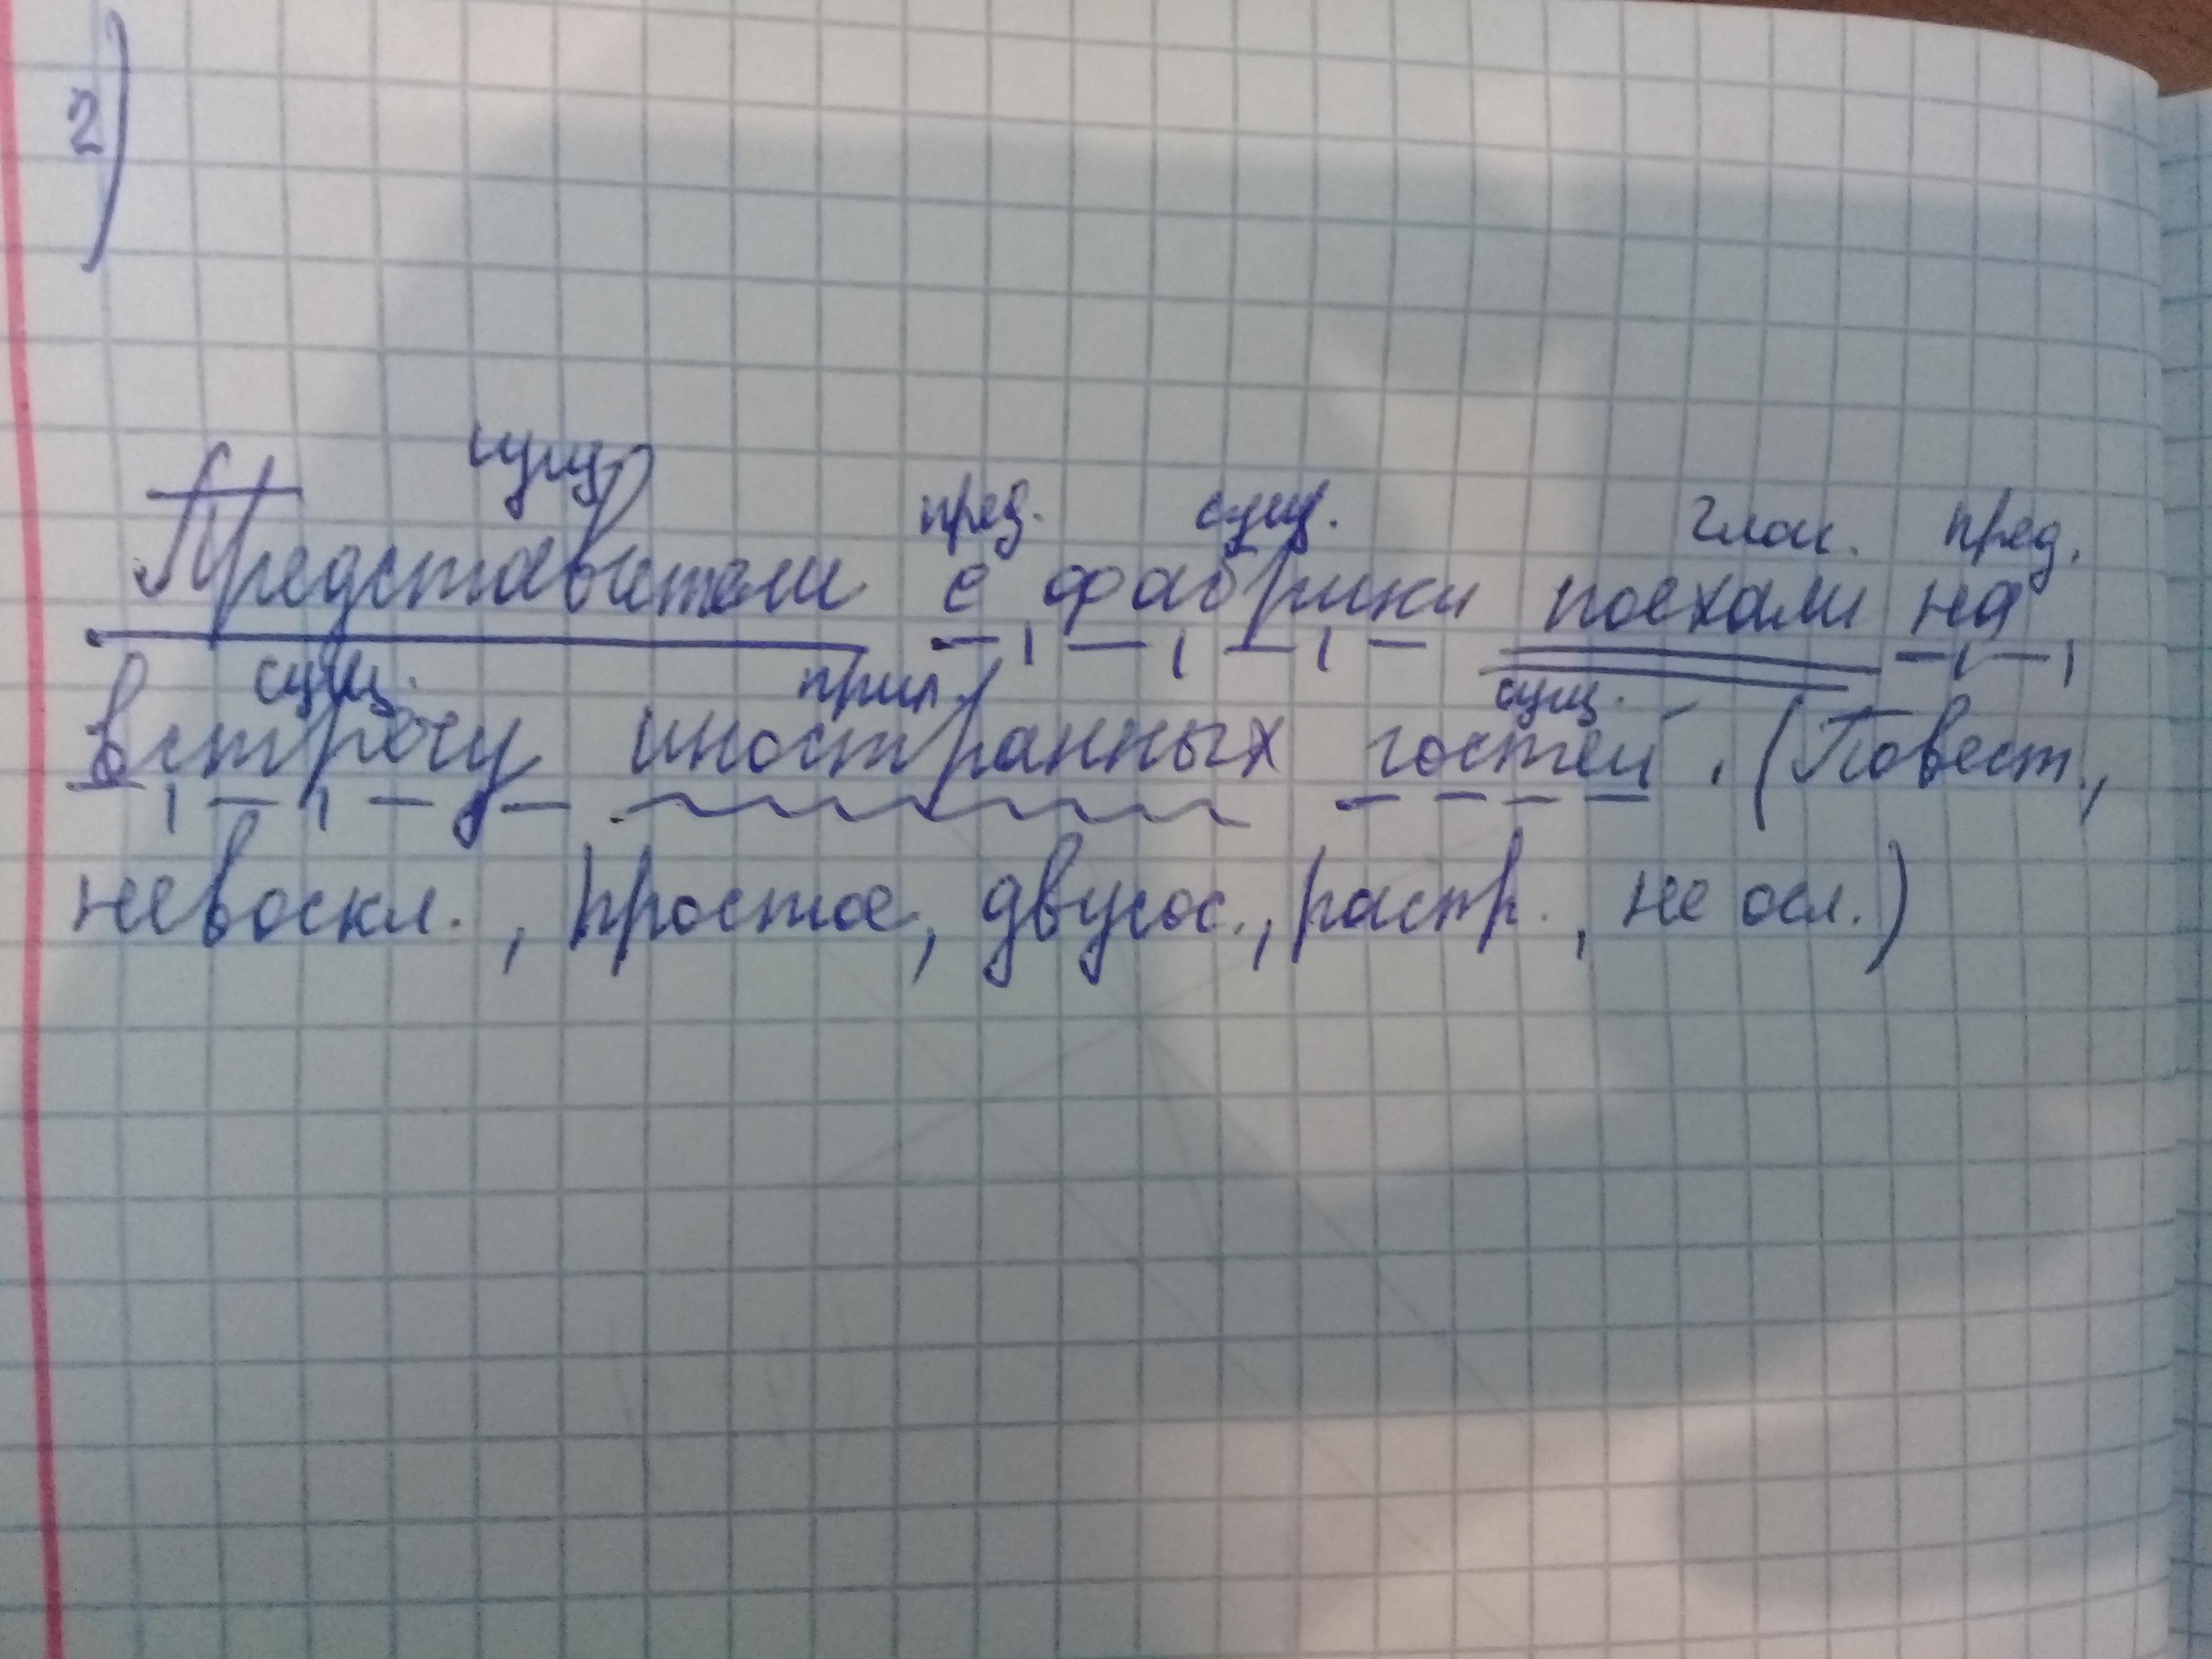 2)
сущ. пред. сущ. глаг. пред.
Представители с фабрики поехали на
сущ. прил. сущ.
встречу иностранных гостей. (Повест.,
невоскл., простое, двусос., распр., не осл.)